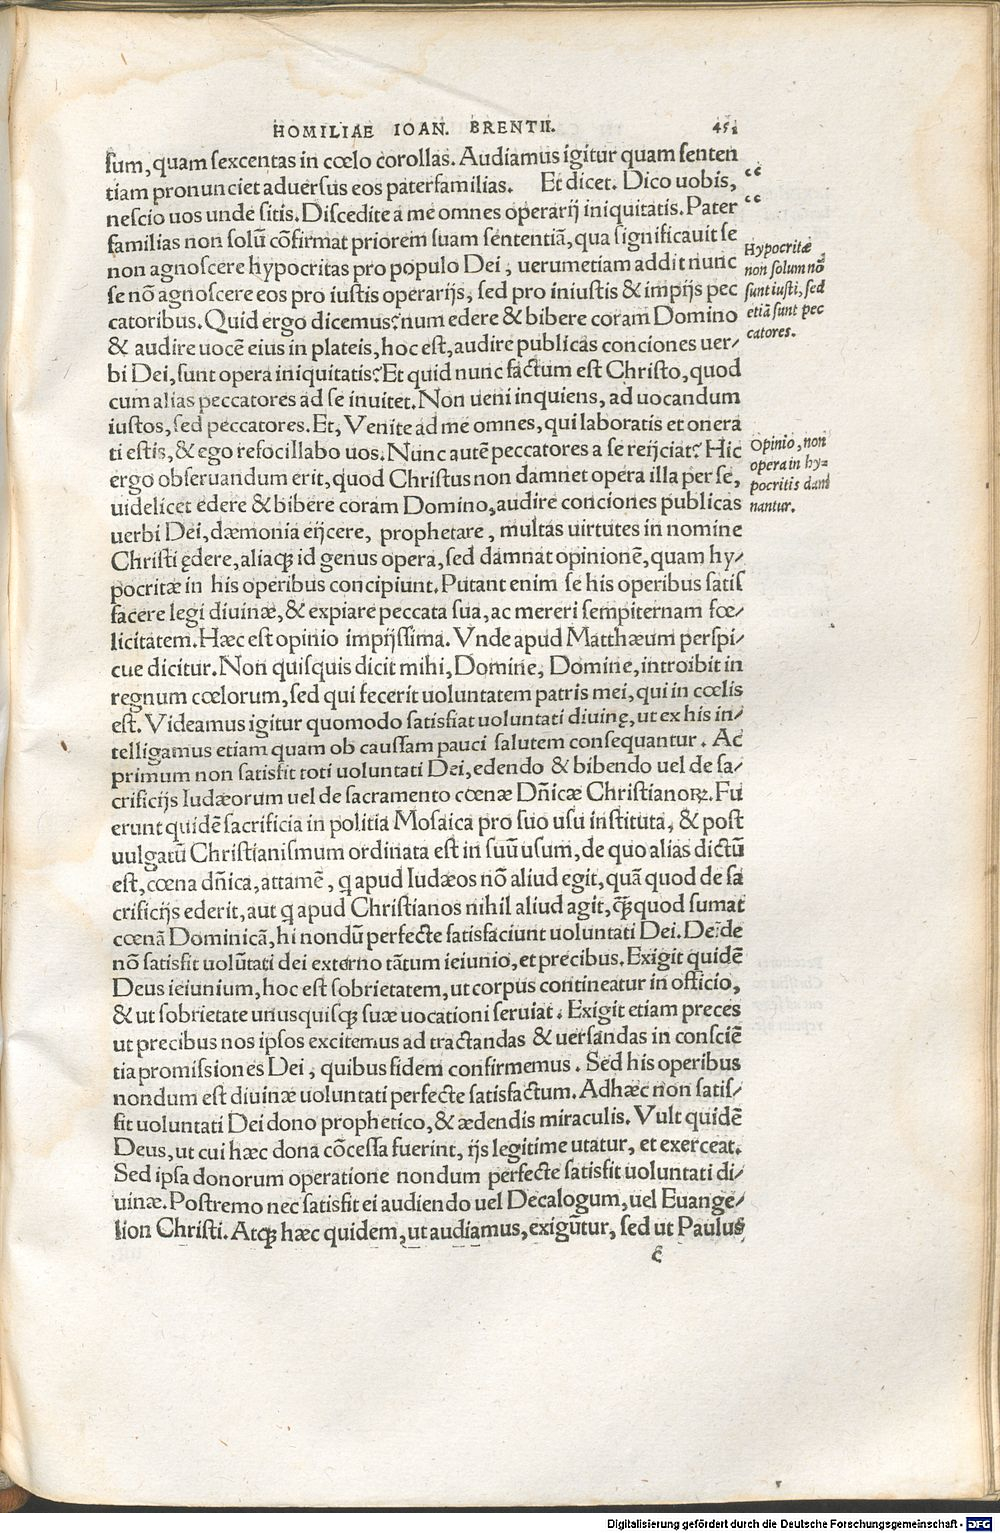 HOMILIAE IOAN. BRENTII. 451
sum, quam sexcentas in cœlo corollas. Audiamus igitur quam senten
tiam pronunciet aduersus eos paterfamilias. Et dicet. Dico uobis,
nescio uos unde sitis. Discedite a me omnes operarij iniquitatis. Pater
familias non solũ cõfirmat priorem suam sententiã, qua significauit se
non agnoscere hypocritas pro populo Dei, uerumetiam addit nunc
se nõ agnoscere eos pro iustis operarijs, sed pro iniustis & impijs pec
catoribus. Quid ergo dicemus? num edere & bibere coram Domino
& audire uocẽ eius in plateis, hoc est, audire publicas conciones uer/
bi Dei, sunt opera iniquitatis? Et quid nunc factum est Christo, quod
cum alias peccatores ad se inuitet. Non ueni inquiens, ad uocandum
iustos, sed peccatores. Et, Venite ad me omnes, qui laboratis et onera
ti estis, & ego refocillabo uos. Nunc autẽ peccatores a se reijciat? Hic
ergo obseruandum erit, quod Christus non damnet opera illa per se,
uidelicet edere & bibere coram Domino, audire conciones publicas
uerbi Dei, dæmonia eijcere, prophetare, multas uirtutes in nomine
Christi ędere, aliaqꝫ id genus opera, sed damnat opinionẽ, quam hy/
pocritæ in his operibus concipiunt. Putant enim se his operibus satis
facere legi diuinæ, & expiare peccata sua, ac mereri sempiternam fœ/
licitatem. Hæc est opinio impijssima. Vnde apud Matthæum perspi/
cue dicitur. Non quisquis dicit mihi, Domine, Domine, introibit in
regnum cœlorum, sed qui fecerit uoluntatem patris mei, qui in cœlis
est. Videamus igitur quomodo satisfiat uoluntati diuinę, ut ex his in/
telligamus etiam quam ob caussam pauci salutem consequantur. Ac
primum non satisfit toti uoluntati Dei, edendo & bibendo uel de sa/
crificijs Iudæorum uel de sacramento cœnæ Dñicæ Christianoꝝ. Fu
erunt quidẽ sacrificia in politia Mosaica pro suo usu instituta, & post
uulgatũ Christianismum ordinata est in suũ usum, de quo alias dictũ
est, cœna dñica, attamẽ, q apud Iudæos nõ aliud egit, quã quod de sa
crificijs ederit, aut q apud Christianos nihil aliud agit, q̃ꝫ quod sumat
cœnã Dominicã, hi nondũ perfecte satisfaciunt uoluntati Dei. Deĩde
nõ satisfit uolũtati dei externo tãtum ieiunio, et precibus. Exigit quidẽ
Deus ieiunium, hoc est sobrietatem, ut corpus contineatur in officio,
& ut sobrietate unusquisqꝫ suæ uocationi seruiat. Exigit etiam preces
ut precibus nos ipsos excitemus ad tractandas & uersandas in consciẽ
tia promissiones Dei, quibus fidem confirmemus. Sed his operibus
nondum est diuinæ uoluntati perfecte satisfactum. Adhæc non satis/
fit uoluntati Dei dono prophetico, & ædendis miraculis. Vult quidẽ
Deus, ut cui hæc dona cõcessa fuerint, ijs legitime utatur, et exerceat.
Sed ipsa donorum operatione nondum perfecte satisfit uoluntati di/
uinæ. Postremo nec satisfit ei audiendo uel Decalogum, uel Euange/
lion Christi. Atqꝫ hæc quidem, ut audiamus, exigũtur, sed ut Paulus
“
“
Hypocritæ
non solum nõ
sunt iusti, sed
etiã sunt pec
catores.
Opinio, non
opera in hy=
pocritis dam
nantur.
Digitalisierung gefördert durch die Deutsche Forschungsgemeinschaft - DFG